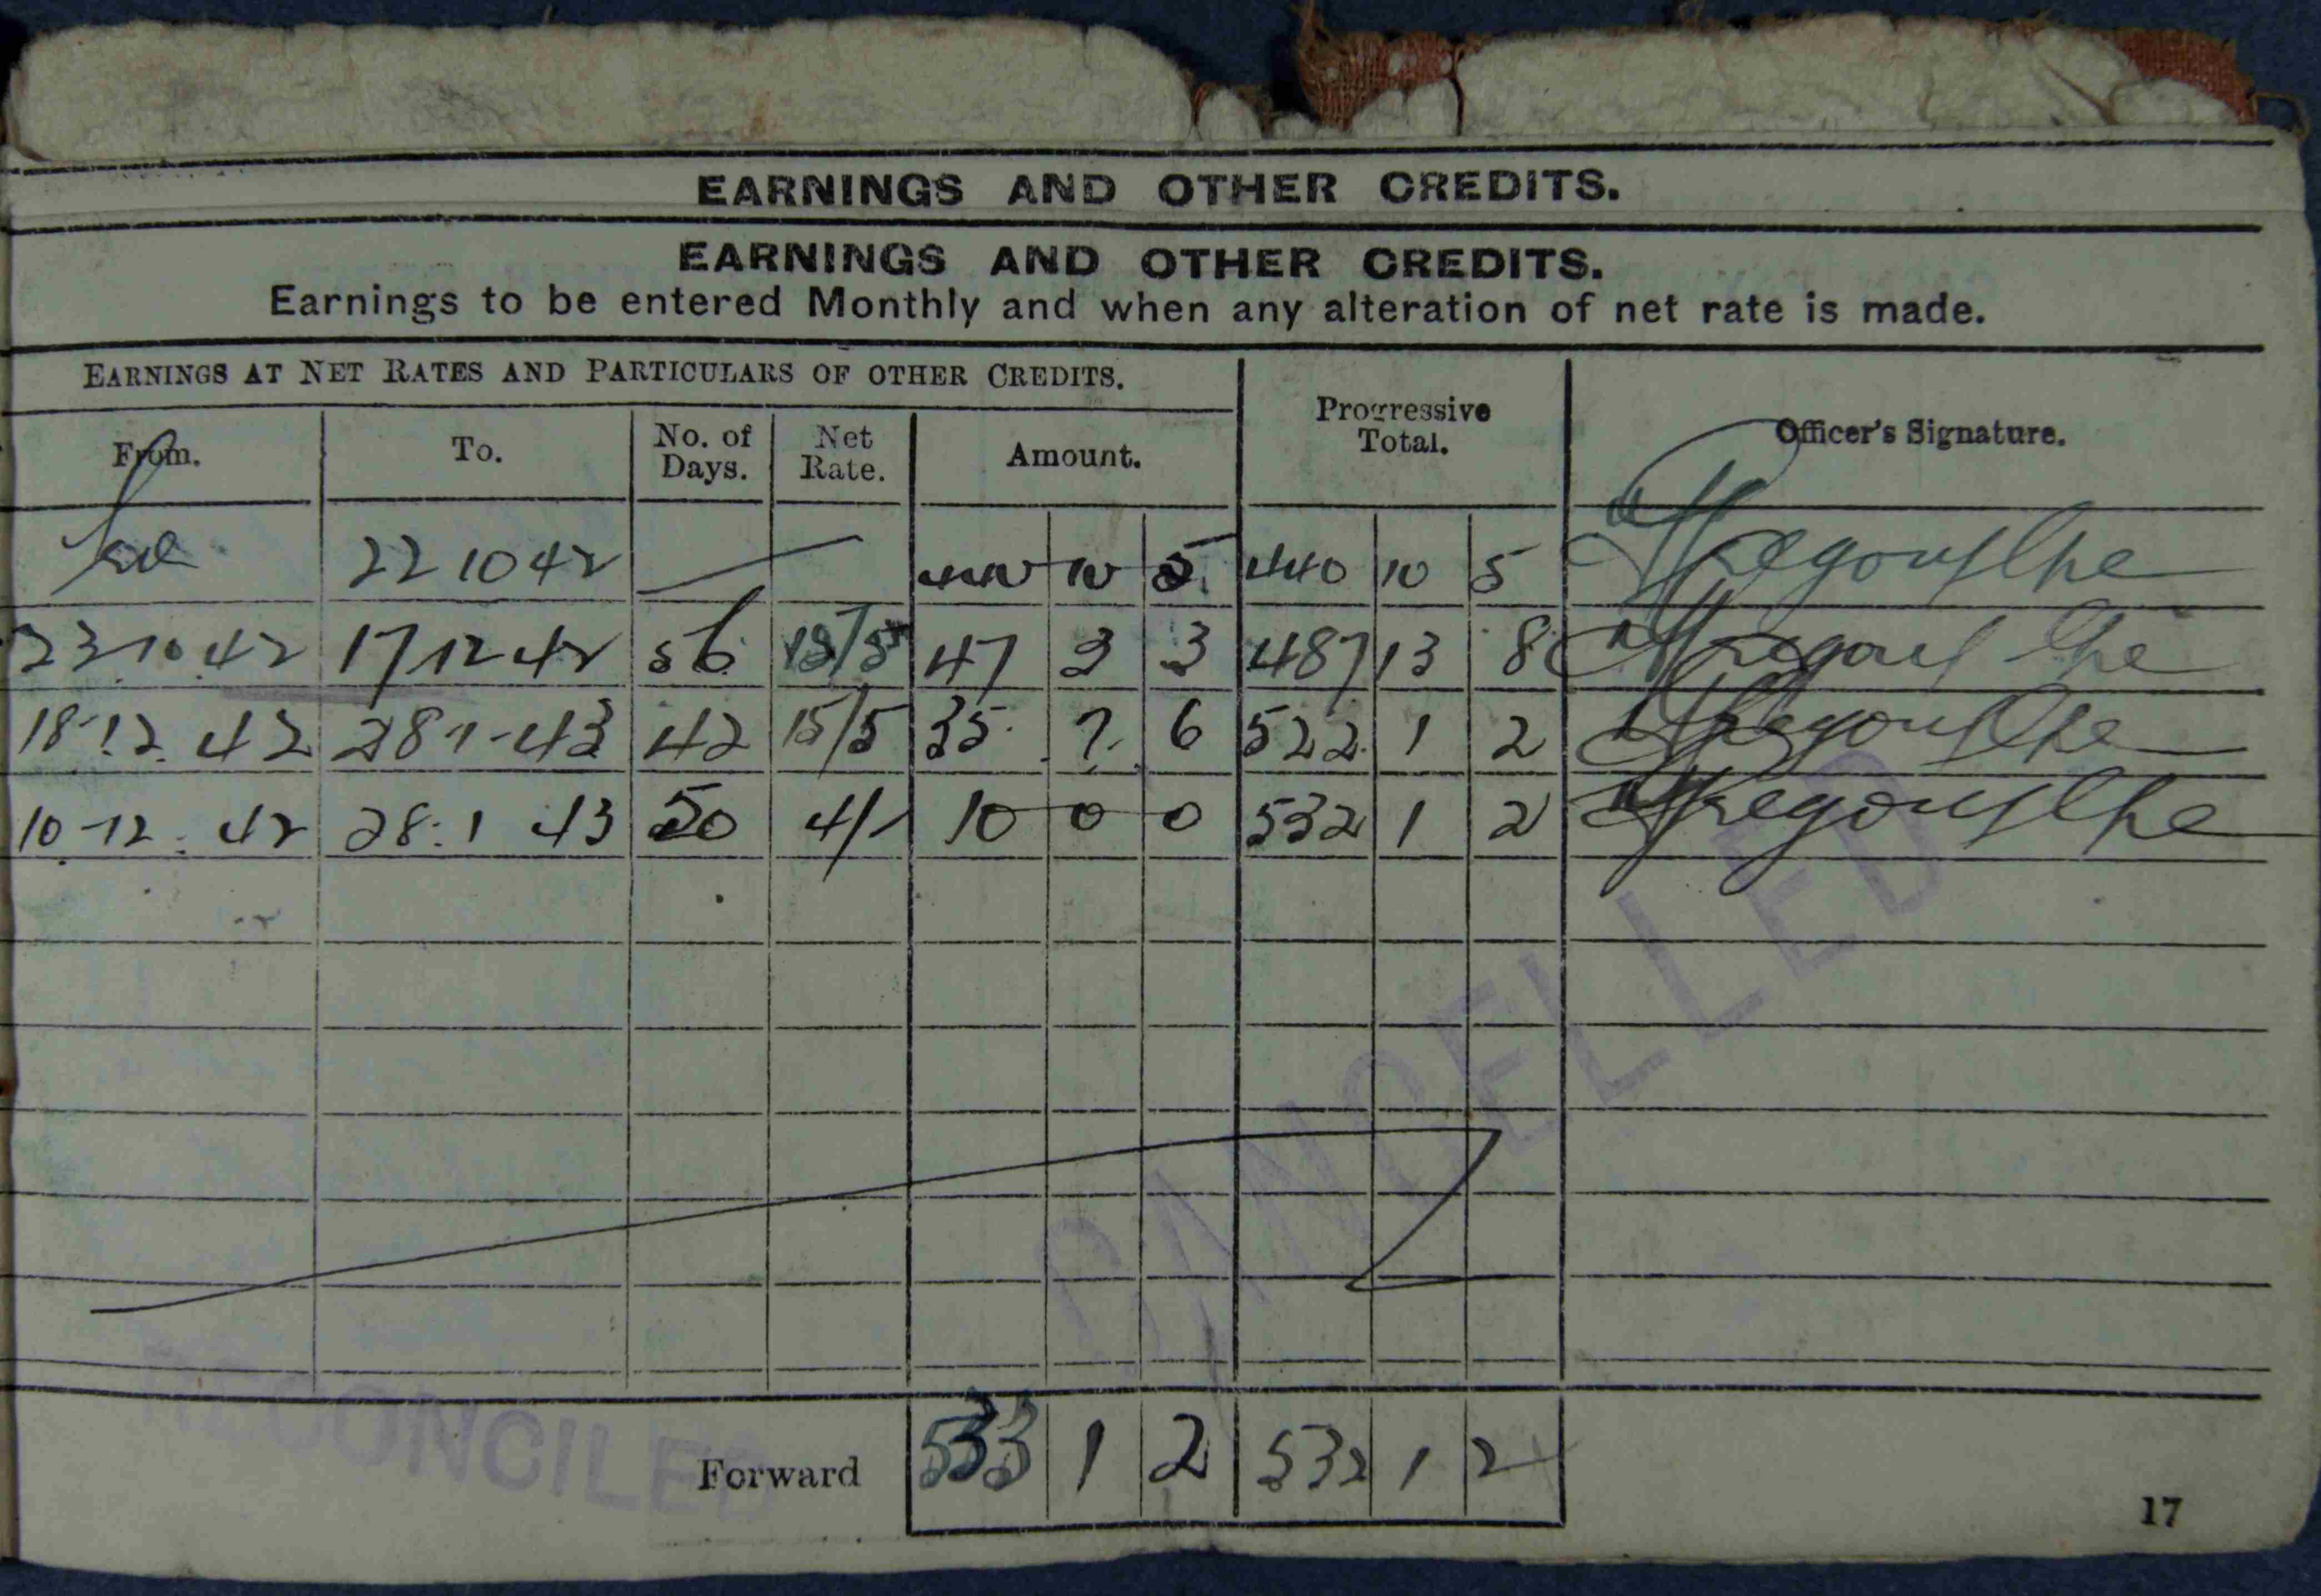 EARNINGS AND OTHER CREDITS.
EARNINGS AND OTHER CREDITS.
Earnings to be entered Monthly and when any alteration of net rate is made.
EARNINGS AT NET RATES AND PARTICULARS OF OTHER CREDITS.
From. To. No. of Days. Net Rate. Amount. Progressive Total. Officer's Signature.
22 10 42 440 10 5 440 10 5
23 10 42 17 12 42 56 47 3 3 487 13 8
18-12. 42 28 1-43 42 15/5 35 7 6 522 1 2
10-12. 42 28. 1 43 50 4/- 10 0 0 532 1 2
CANCELLED
RECONCILED
Forward 533 1 2 532 1 2
17